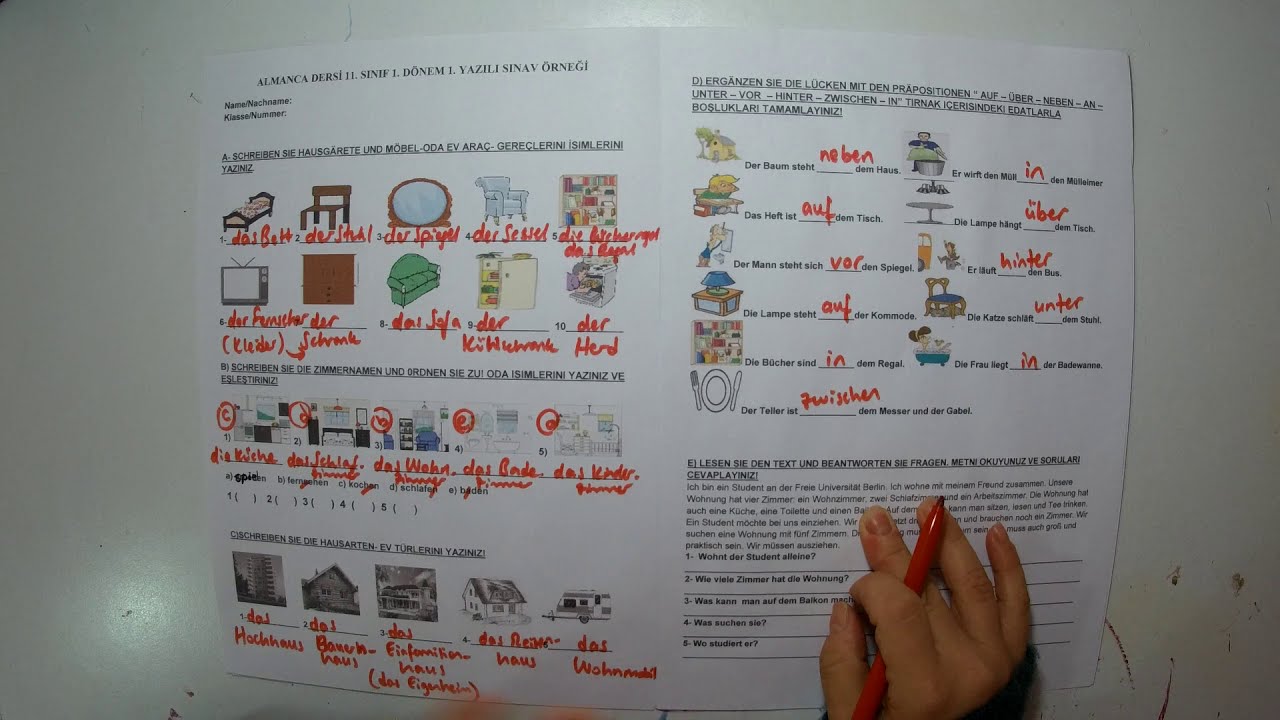 ALMANCA DERSİ 11. SINIF 1. DÖNEM 1. YAZILI SINAV ÖRNEĞİ
Name/Nachname:
Klasse/Nummer:
A- SCHREIBEN SIE HAUSGÄRETE UND MÖBEL-ODA EV ARAÇ- GEREÇLERINI İSIMLERINI
YAZINIZ.
1- das Bett 2 der Stuhl 3- der Spiegel 4- der Sessel 5 die Bücherregal
das Regal
6- der Fernseher der 8- das Sofa 9- der 10 der
(Kleider) Schrank Kühlschrank Herd
B) SCHREIBEN SIE DIE ZIMMERNAMEN UND 0RDNEN SIE ZU! ODA ISIMLERINI YAZINIZ VE
EŞLEŞTIRINIZ!
c d b e a
1) 2) 3) 4) 5)
die Küche das Schlaf- das Wohn- das Bade- das Kinder-
zimmer zimmer zimmer zimmer
a) spielen b) fernsehen c) kochen d) schlafen e) baden
1 ( ) 2 ( ) 3 ( ) 4 ( ) 5 ( )
C)SCHREIBEN SIE DIE HAUSARTEN- EV TÜRLERINI YAZINIZ!
1-das 2 das 3-das 4- das Reihen- das
Hochhaus Bauern- Einfamilien- haus Wohnmobil
haus haus
(das Eigenheim)
D) ERGÄNZEN SIE DIE LÜCKEN MIT DEN PRÄPOSITIONEN “ AUF – ÜBER – NEBEN – AN –
UNTER – VOR – HINTER – ZWISCHEN – IN” TIRNAK IÇERISINDEKI EDATLARLA
BOŞLUKLARI TAMAMLAYINIZ!
Der Baum steht neben dem Haus. Er wirft den Müll in den Mülleimer
Das Heft ist auf dem Tisch. Die Lampe hängt über dem Tisch.
Der Mann steht sich vor den Spiegel. Er läuft hinter den Bus.
Die Lampe steht auf der Kommode. Die Katze schläft unter dem Stuhl.
Die Bücher sind in dem Regal. Die Frau liegt in der Badewanne.
Der Teller ist zwischen dem Messer und der Gabel.
E) LESEN SIE DEN TEXT UND BEANTWORTEN SIE FRAGEN. METNI OKUYUNUZ VE SORULARI
CEVAPLAYINIZ!
Ich bin ein Student an der Freie Universität Berlin. Ich wohne mit meinem Freund zusammen. Unsere
Wohnung hat vier Zimmer: ein Wohnzimmer, zwei Schlafzimmer und ein Arbeitszimmer. Die Wohnung hat
auch eine Küche, eine Toilette und einen Auf dem kann man sitzen, lesen und Tee trinken.
Ein Student möchte bei uns einziehen. Wir und brauchen noch ein Zimmer. Wir
suchen eine Wohnung mit fünf Zimmern. sein muss auch groß und
praktisch sein. Wir müssen ausziehen.
1- Wohnt der Student alleine?
2- Wie viele Zimmer hat die Wohnung?
3- Was kann man auf dem Balkon
4- Was suchen sie?
5- Wo studiert er?